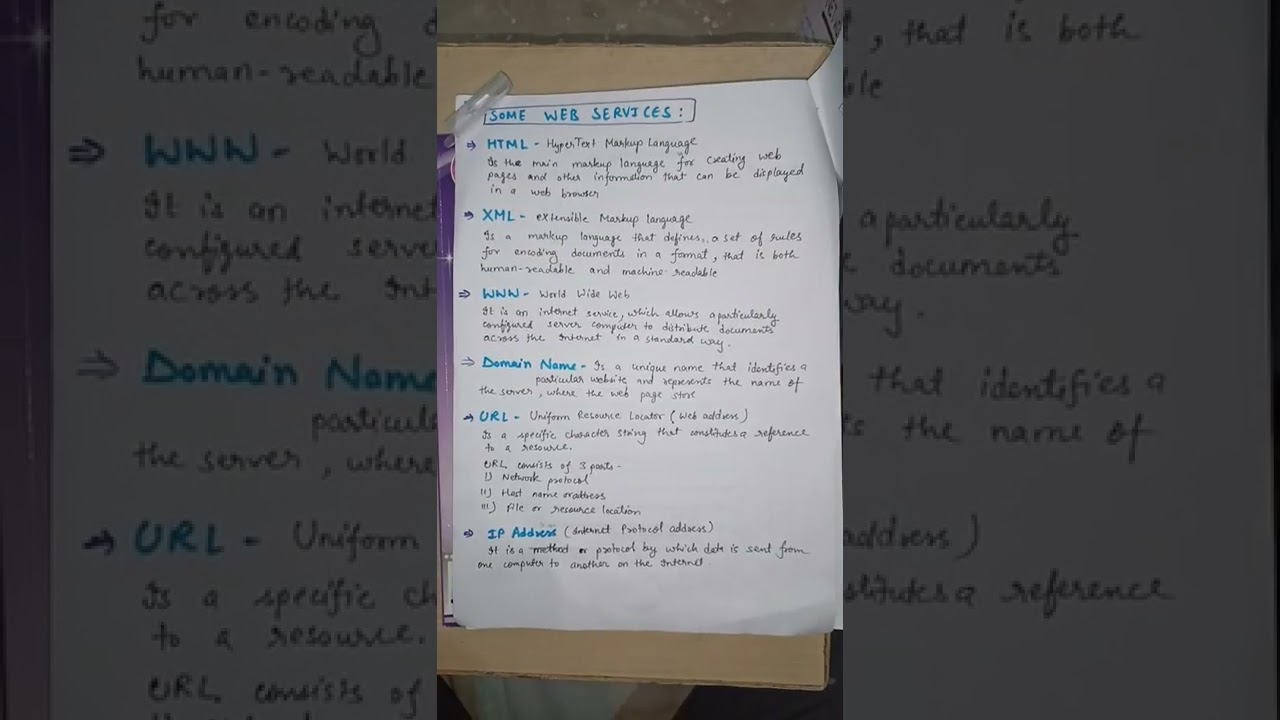 SOME WEB SERVICES:
⇒ HTML - HyperText Markup Language
Is the main markup language for creating web
pages and other information that can be displayed
in a web browser
⇒ XML - extensible Markup language
Is a markup language that defines a set of rules
for encoding documents in a format, that is both
human-readable and machine-readable
⇒ WWW - World Wide Web
It is an internet service, which allows a particularly
configured server computer to distribute documents
across the Internet in a standard way.
⇒ Domain Name - Is a unique name that identifies a
particular website and represents the name of
the server, where the web page store
→ URL - Uniform Resource Locator (Web address)
Is a specific character string that constitutes a reference
to a resource.
URL consists of 3 parts -
I) Network protocol
II) Host name or address
III) File or resource location
⇒ IP Address (Internet Protocol address)
It is a method or protocol by which date is sent from
one computer to another on the Internet.